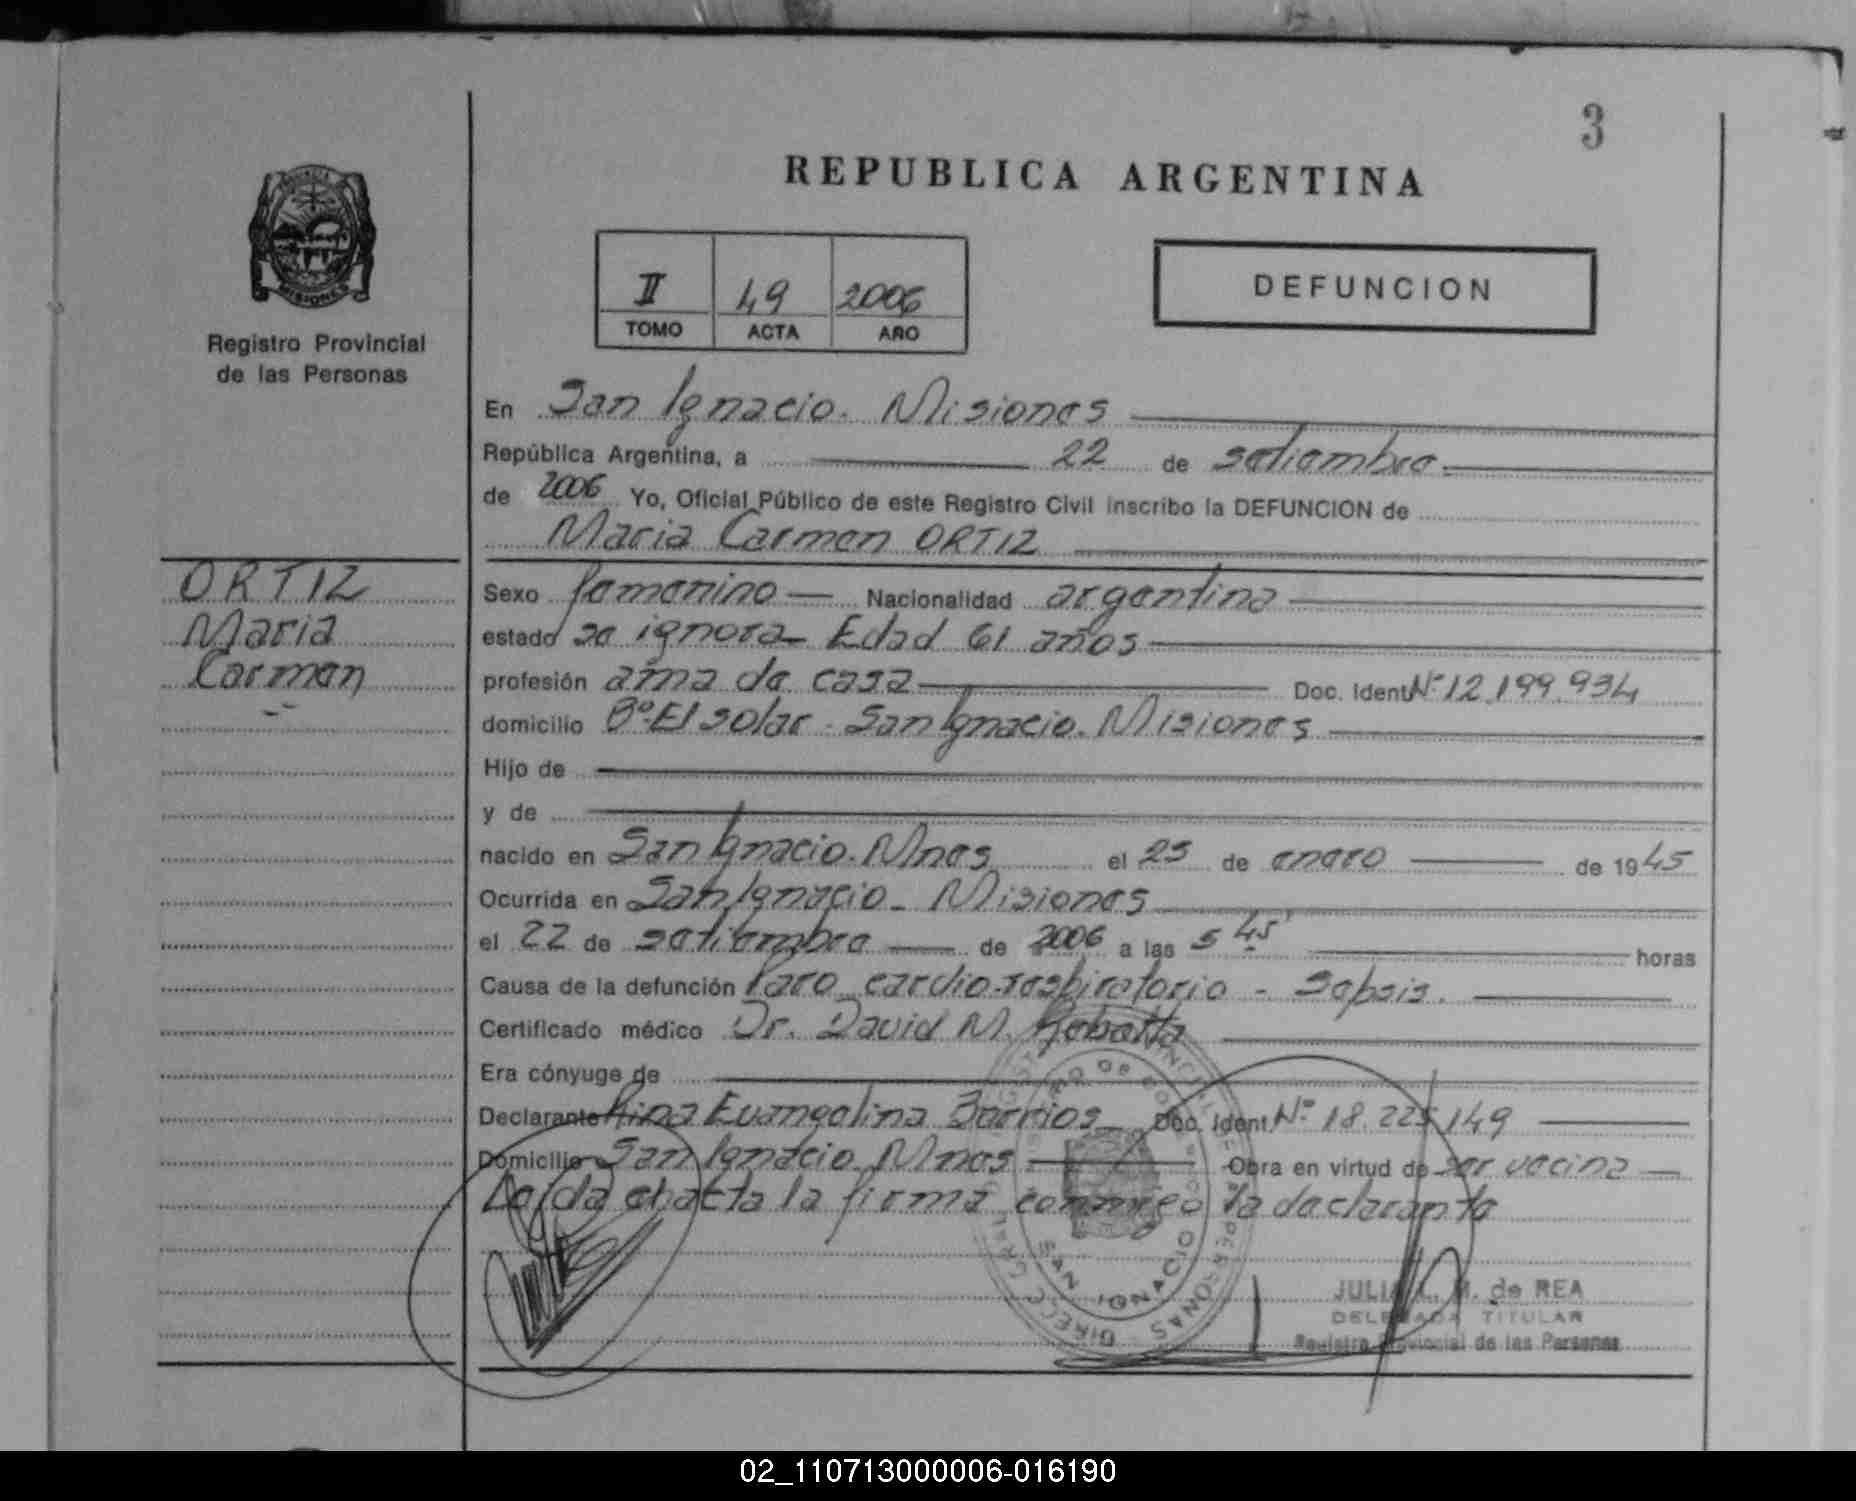 3
REPUBLICA ARGENTINA
MISIONES
Registro Provincial
de las Personas
II 49 2006
TOMO ACTA AÑO
DEFUNCION
En San Ignacio. Misiones
República Argentina, a 22 de setiembre
de 2006 Yo, Oficial Público de este Registro Civil inscribo la DEFUNCION de
Maria Carmen ORTIZ
ORTIZ
Maria
Carmen
Sexo femenino Nacionalidad argentina
estado se ignora Edad 61 años
profesión ama de casa Doc. Ident Nº 12.199.934
domicilio Bº El solar - San Ignacio. Misiones
Hijo de
y de
nacido en San Ignacio. Mnes el 25 de enero de 1945
Ocurrida en San Ignacio - Misiones
el 22 de setiembre de 2006 a las 5 45' horas
Causa de la defunción Paro cardio-respiratorio - Sepsis.
Certificado médico Dr. David M.
Era cónyuge de
Declarante Evangelina Barrios Doc. Ident. Nº 18.225.149
Domicilio San Ignacio Mnes Obra en virtud de ser vecina
Leida el acta la firma conmigo la declarante
SAN IGNACIO
JULIA L. M. de REA
DELEGADA TITULAR
Registro Provincial de las Personas
02_110713000006-016190